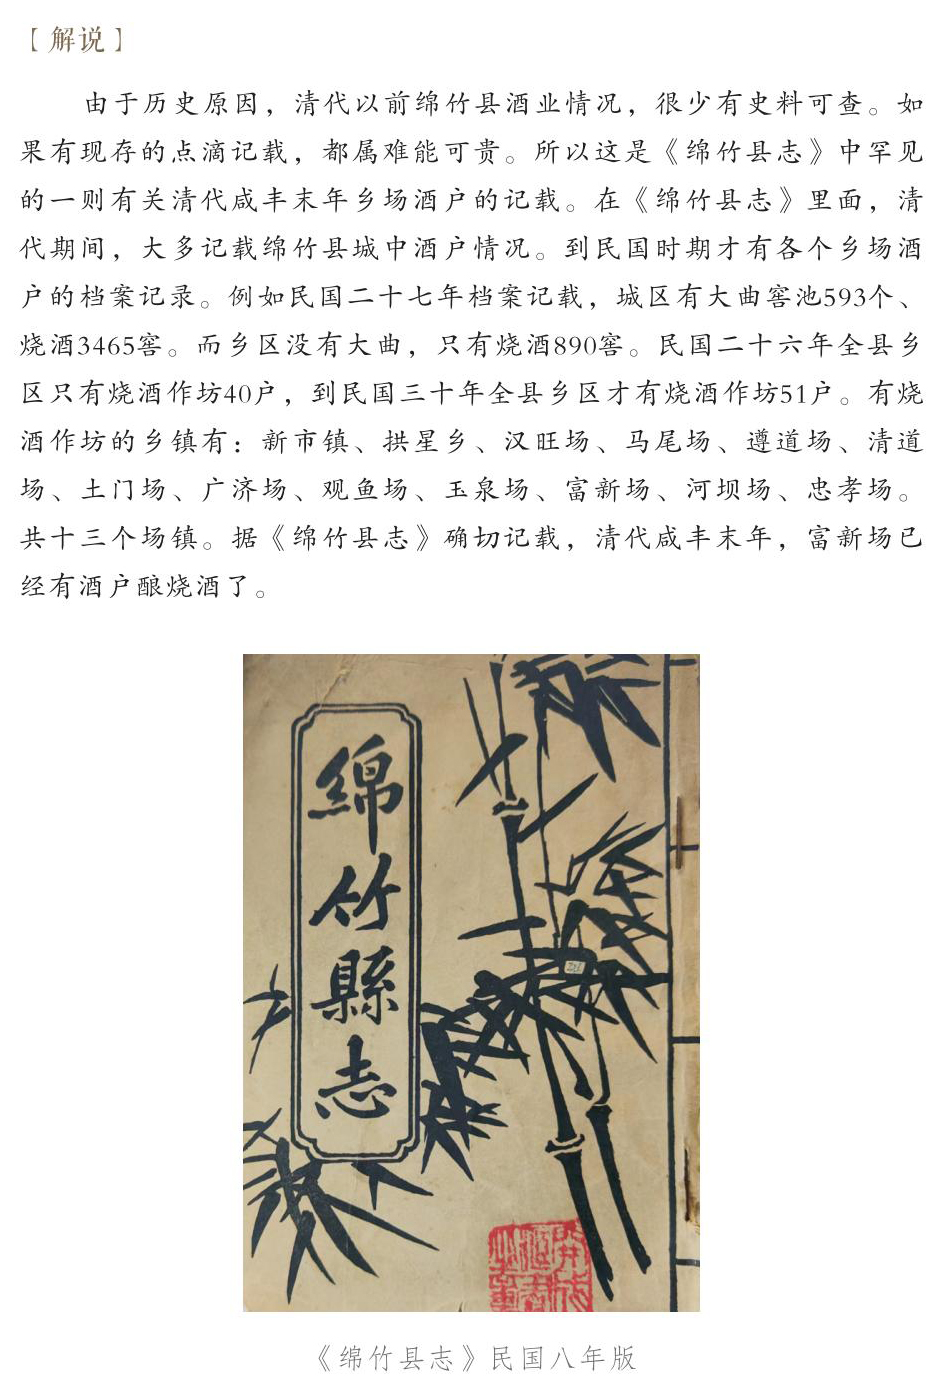 【解说】
由于历史原因，清代以前绵竹县酒业情况，很少有史料可查。如
果有现存的点滴记载，都属难能可贵。所以这是《绵竹县志》中罕见
的一则有关清代咸丰末年乡场酒户的记载。在《绵竹县志》里面，清
代期间，大多记载绵竹县城中酒户情况。到民国时期才有各个乡场酒
户的档案记录。例如民国二十七年档案记载，城区有大曲窖池593个、
烧酒3465窖。而乡区没有大曲，只有烧酒890窖。民国二十六年全县乡
区只有烧酒作坊40户，到民国三十年全县乡区才有烧酒作坊51户。有烧
酒作坊的乡镇有：新市镇、拱星乡、汉旺场、马尾场、遵道场、清道
场、土门场、广济场、观鱼场、玉泉场、富新场、河坝场、忠孝场。
共十三个场镇。据《绵竹县志》确切记载，清代咸丰末年，富新场已
经有酒户酿烧酒了。
綿竹縣志
《绵竹县志》民国八年版